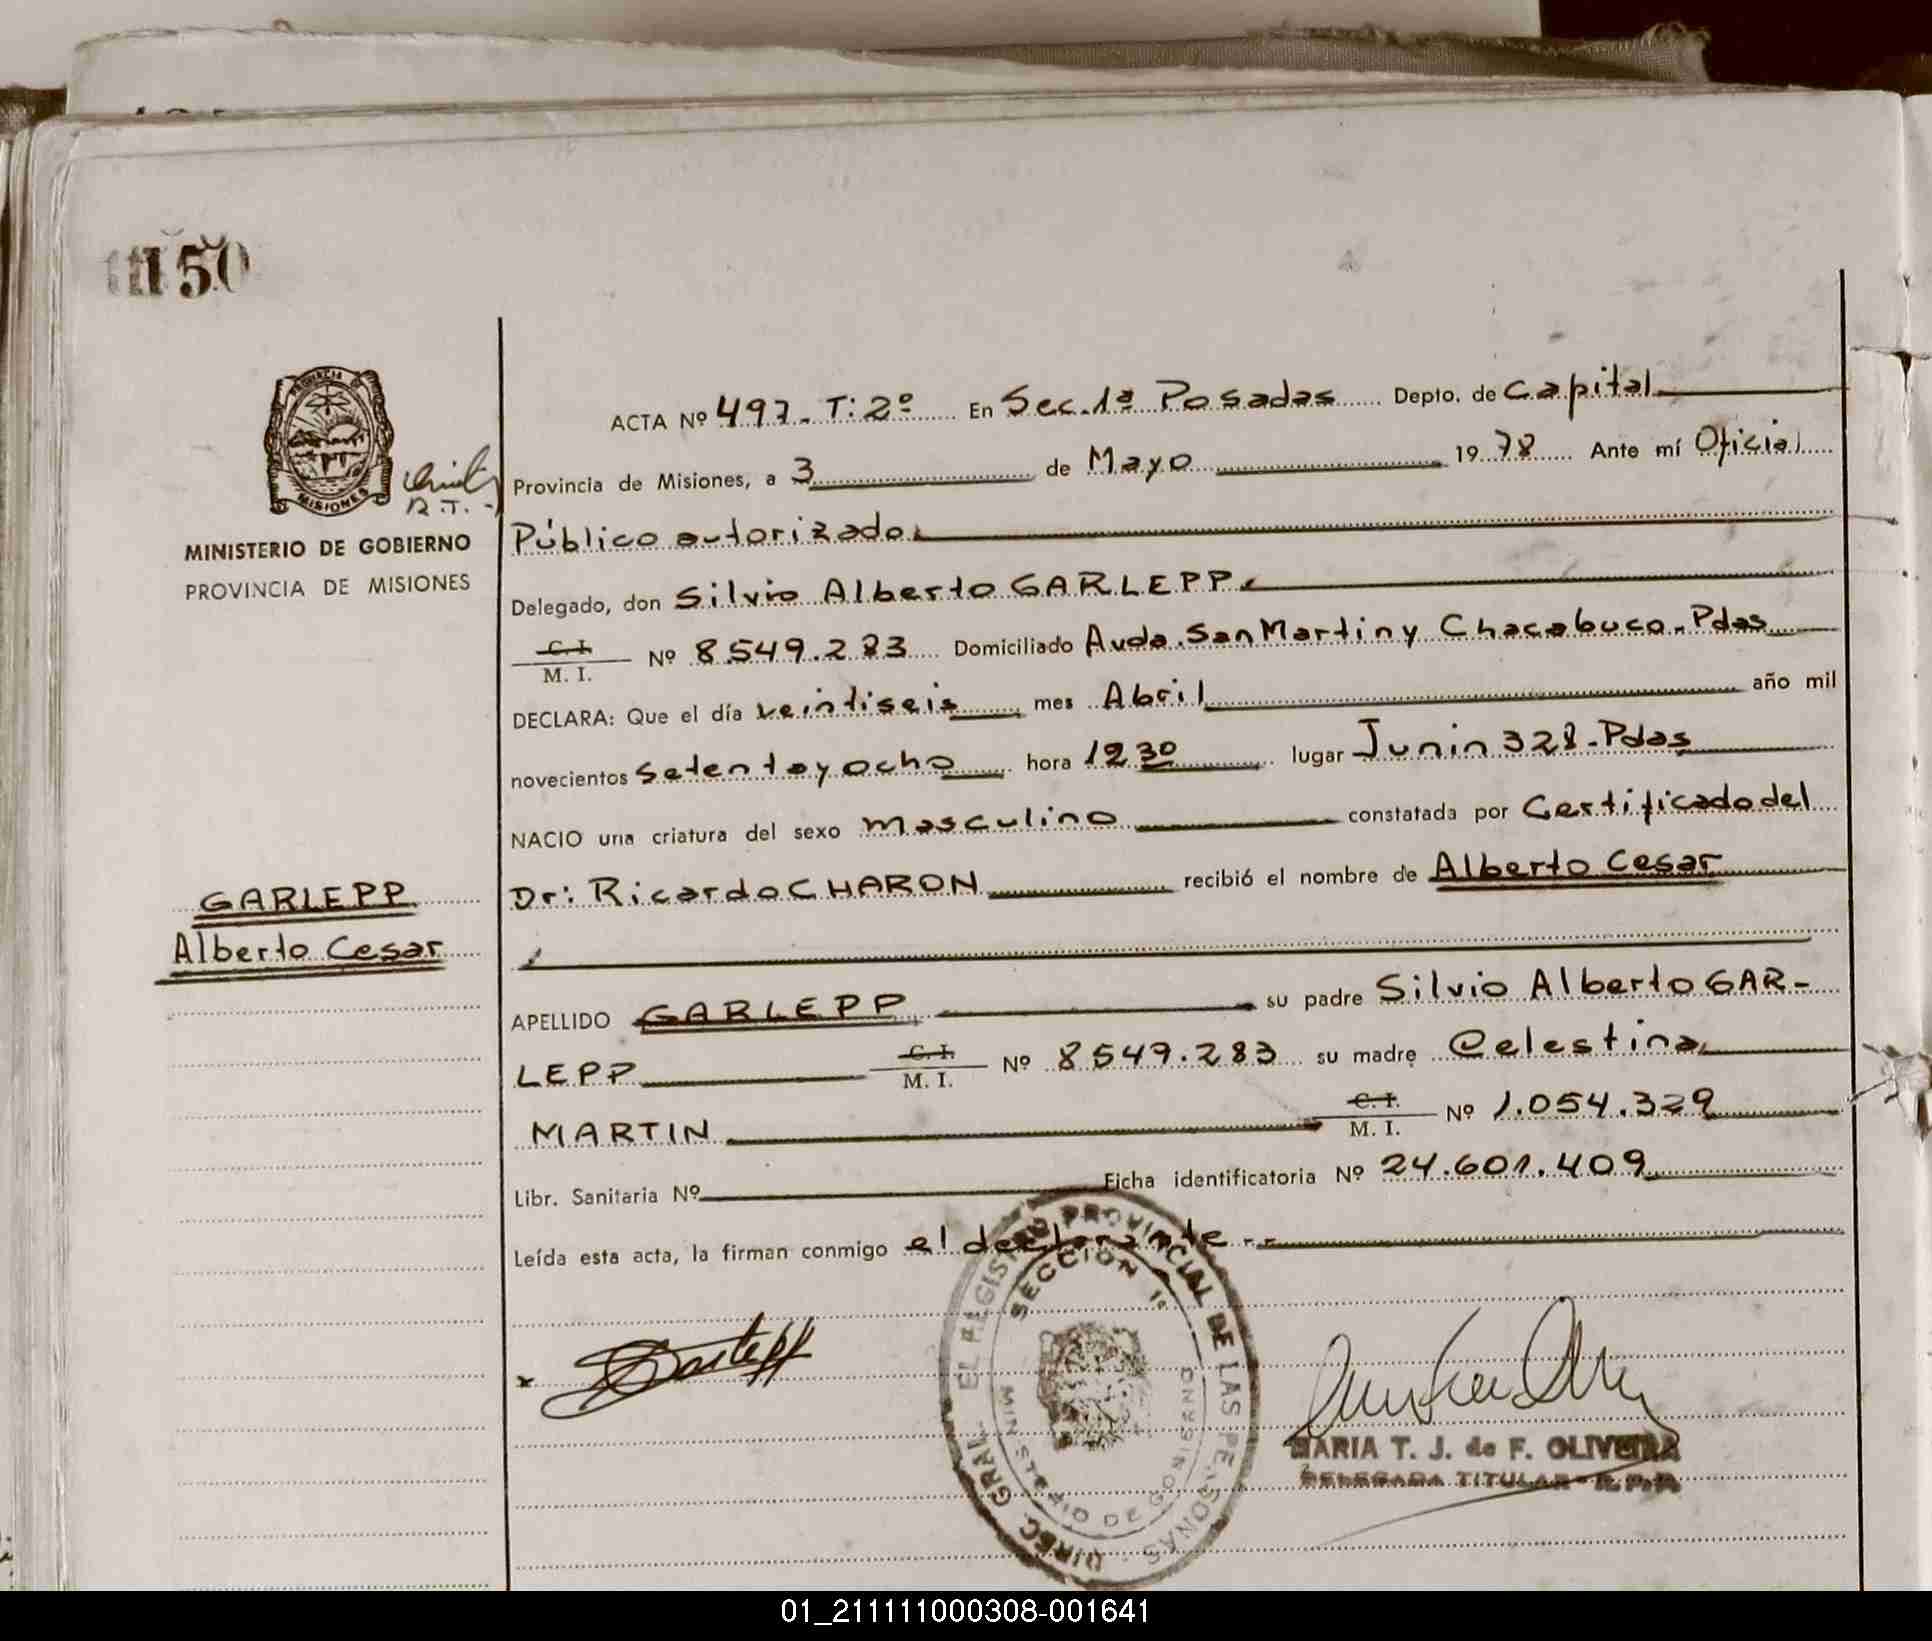 150
PROVINCIA DE
MISIONES
R.T.-
MINISTERIO DE GOBIERNO
PROVINCIA DE MISIONES
ACTA Nº 497. T: 2º En Sec. 1ª Posadas Depto. de Capital
Provincia de Misiones, a 3 de Mayo 1978 Ante mí Oficial
Público autorizado
Delegado, don Silvio Alberto GARLEPP
C. I.
M. I. Nº 8.549.283 Domiciliado Avda. San Martin y Chacabuco. Pdas
DECLARA: Que el día veintiseis mes Abril año mil
novecientos setenta y ocho hora 12 30 lugar Junin 328-Pdas
NACIO una criatura del sexo masculino constatada por Certificado del
Dr: Ricardo CHARON recibió el nombre de Alberto Cesar
GARLEPP
Alberto Cesar
APELLIDO GARLEPP su padre Silvio Alberto GAR-
LEPP C. I.
M. I. Nº 8549.283 su madre Celestina
MARTIN C. I.
M. I. Nº 1.054.329
Libr. Sanitaria Nº Ficha identificatoria Nº 24.601.409
Leída esta acta, la firman conmigo el declarante--
DIREC. GRAL. EL REGISTRO PROVINCIAL DE LAS PERSONAS
SECCION 1ª
MINISTERIO DE GOBIERNO
x Garlepp
MARIA T. J. de F. OLIVEIRA
DELEGADA TITULAR - R.P.P.
01_211111000308-001641